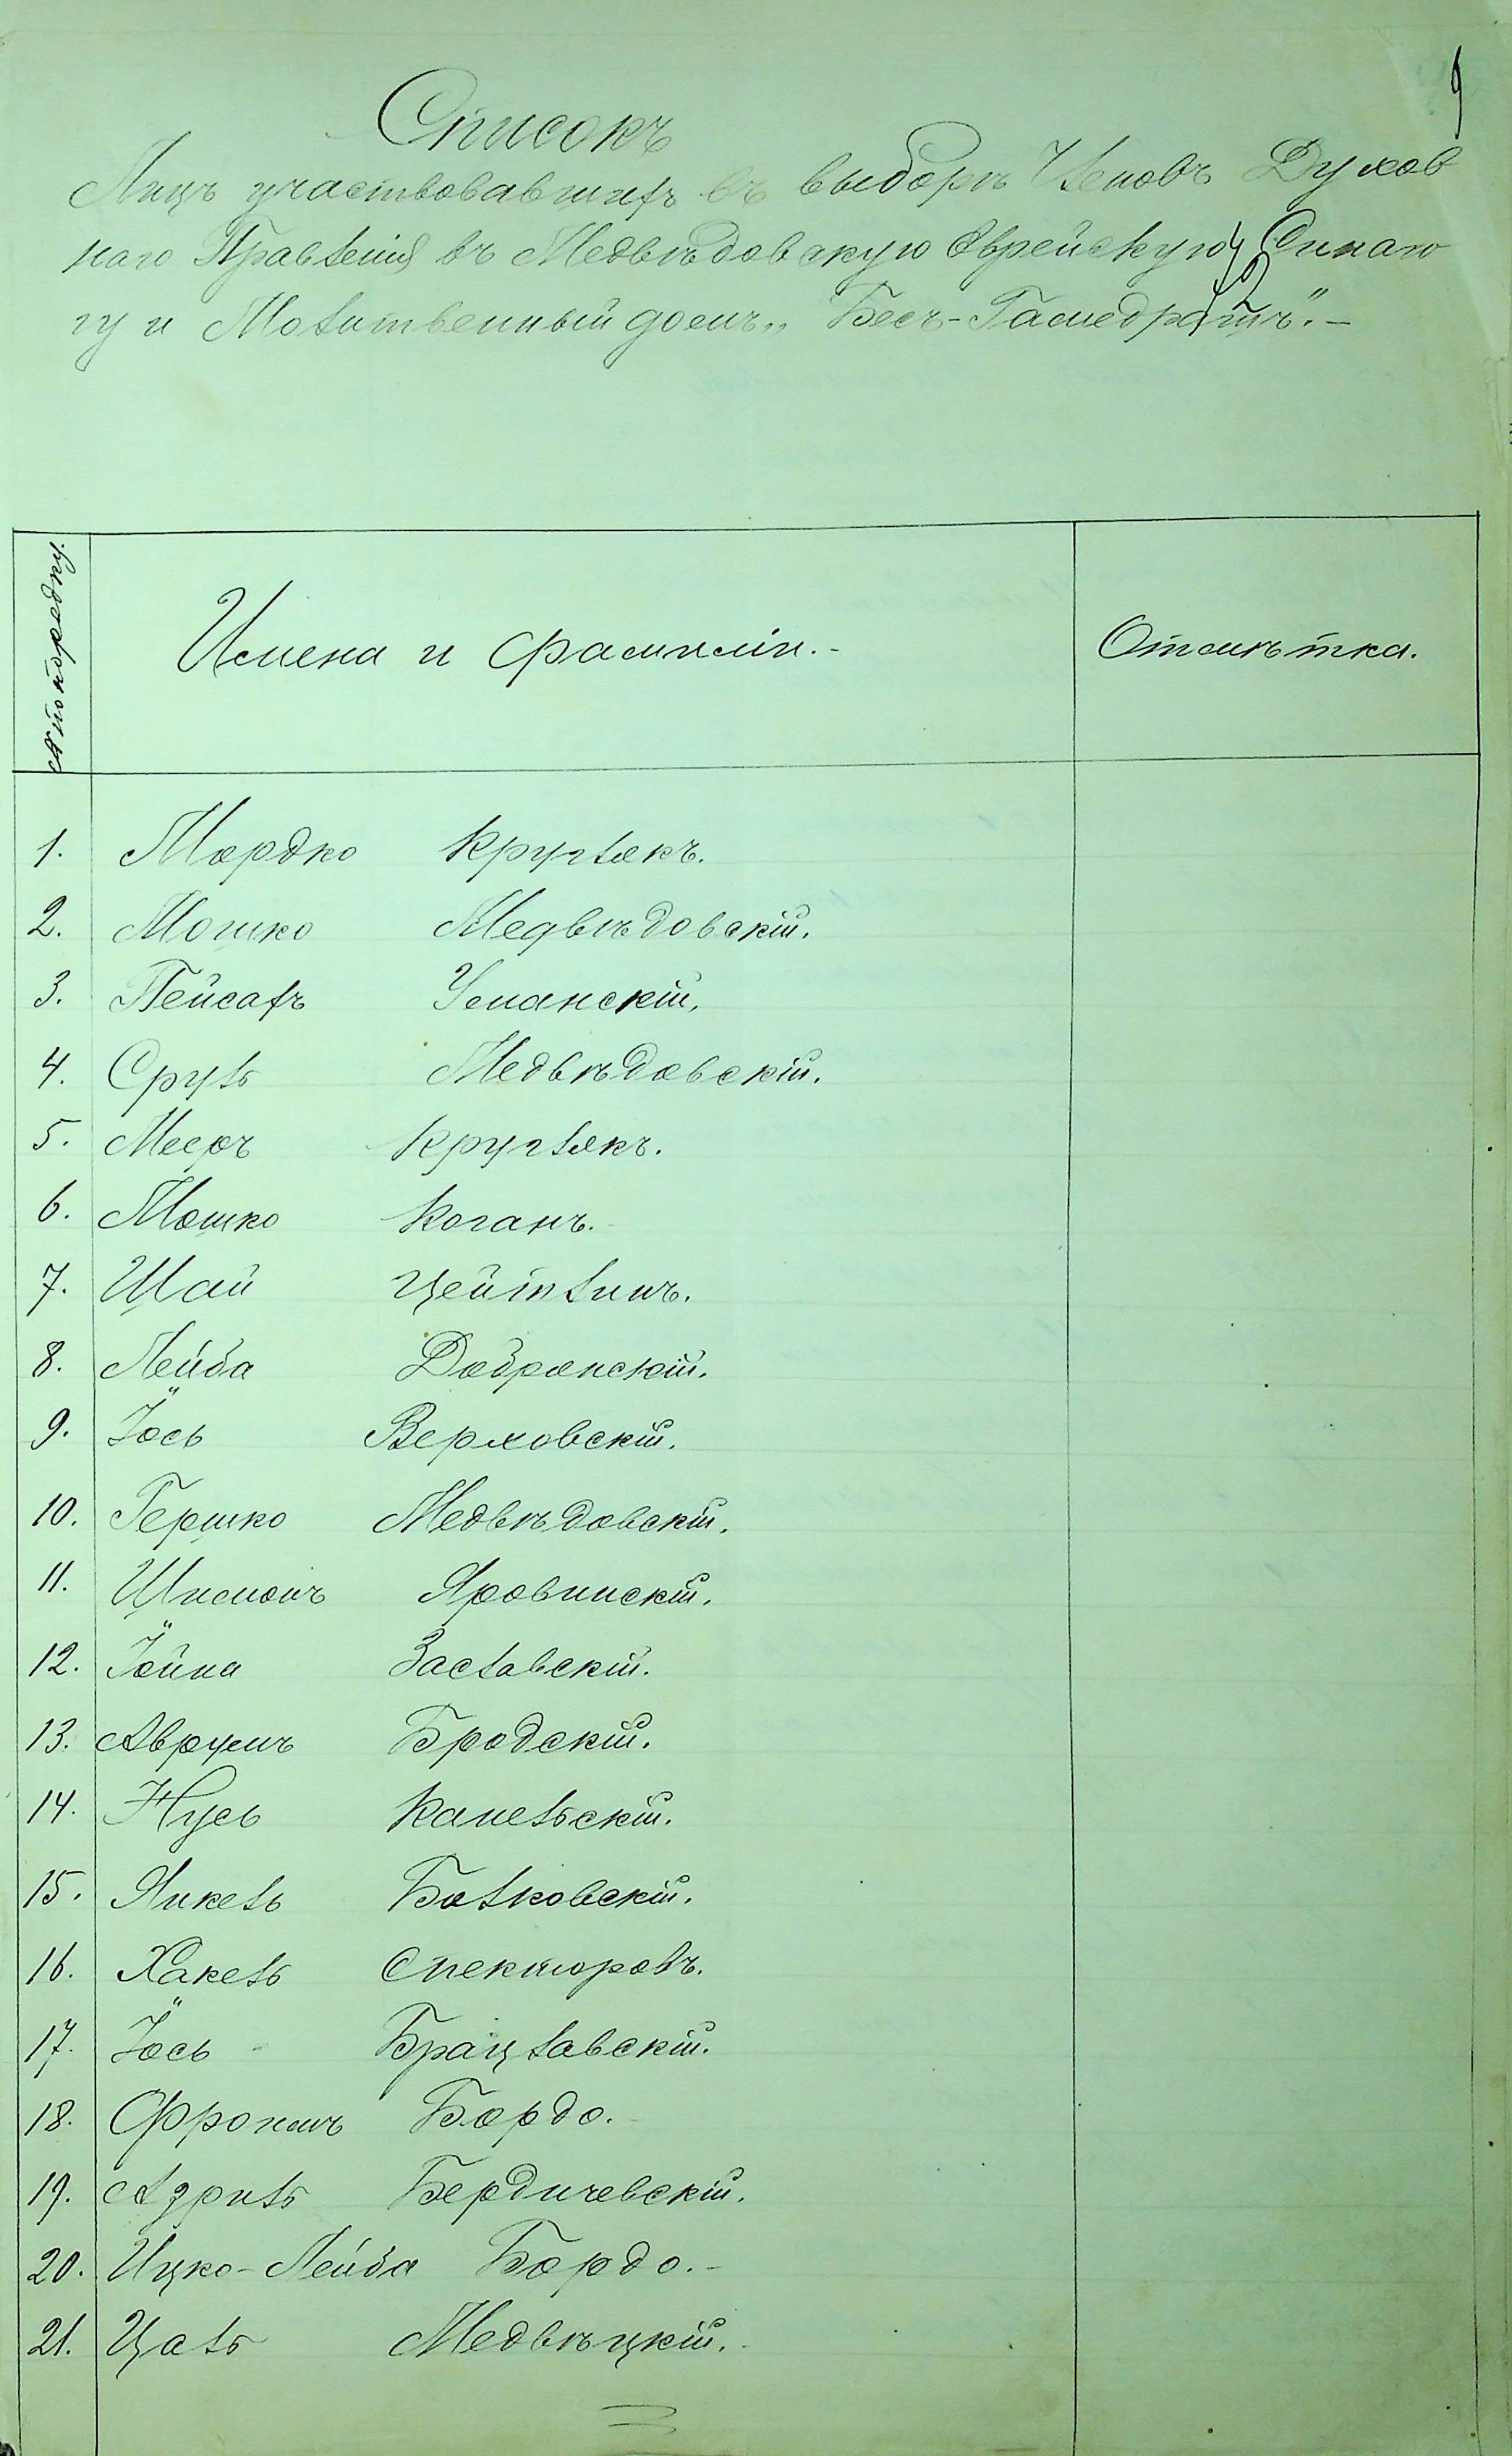 9
Списокъ
Лицъ участвовавшихъ въ выборѣ Членовъ Духов
наго Правленія въ Медвѣдовскую Еврейскую Синаго
гу и Молитвенный домъ „Бесъ-Гамедрашъ". –
№ по порядку.
Имена и фамиліи. –
Отмѣтка.
1. Мордко Круглякъ.
2. Мошко Медвѣдовскій.
3. Пейсахъ Уманскій.
4. Сруль Медвѣдовскій.
5. Мееръ Круглякъ.
6. Мошко Коганъ.
7. Шай Цейтлинъ.
8. Лейба Добранскій.
9. Іось Верховскій.
10. Гершко Медвѣдовскій.
11. Шимонъ Яровинскій.
12. Іойна Заславскій.
13. Аврумъ Бродскій.
14. Нусь Капельскій.
15. Янкель Балковскій.
16. Хакель Спекторовъ.
17. Іось Брацлавскій.
18. Фроимъ Бордо.
19. Азриль Бердичевскій.
20. Ицко-Лейба Бордо. –
21. Цаль Медвѣцкій.